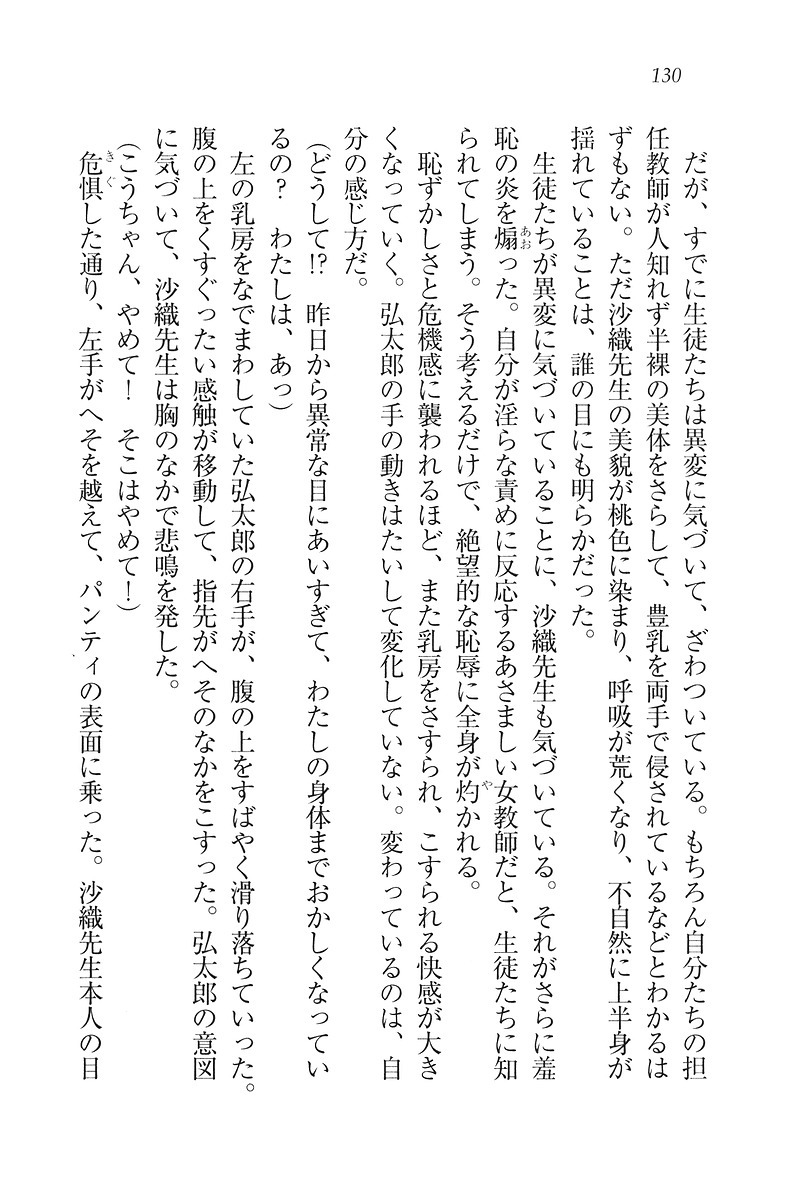 130
だが、すでに生徒たちは異変に気づいて、ざわついている。もちろん自分たちの担
任教師が人知れず半裸の美体をさらして、豊乳を両手で侵されているなどとわかるは
ずもない。ただ沙織先生の美貌が桃色に染まり、呼吸が荒くなり、不自然に上半身が
揺れていることは、誰の目にも明らかだった。
生徒たちが異変に気づいていることに、沙織先生も気づいている。それがさらに羞
恥の炎を煽った。自分が淫らな責めに反応するあさましい女教師だと、生徒たちに知
られてしまう。そう考えるだけで、絶望的な恥辱に全身が灼かれる。
恥ずかしさと危機感に襲われるほど、また乳房をさすられ、こすられる快感が大き
くなっていく。弘太郎の手の動きはたいして変化していない。変わっているのは、自
分の感じ方だ。
(どうして!?　昨日から異常な目にあいすぎて、わたしの身体までおかしくなってい
るの？　わたしは、あっ)
左の乳房をなでまわしていた弘太郎の右手が、腹の上をすばやく滑り落ちていった。
腹の上をくすぐったい感触が移動して、指先がへそのなかをこすった。弘太郎の意図
に気づいて、沙織先生は胸のなかで悲鳴を発した。
(こうちゃん、やめて！　そこはやめて！)
危惧した通り、左手がへそを越えて、パンティの表面に乗った。沙織先生本人の目